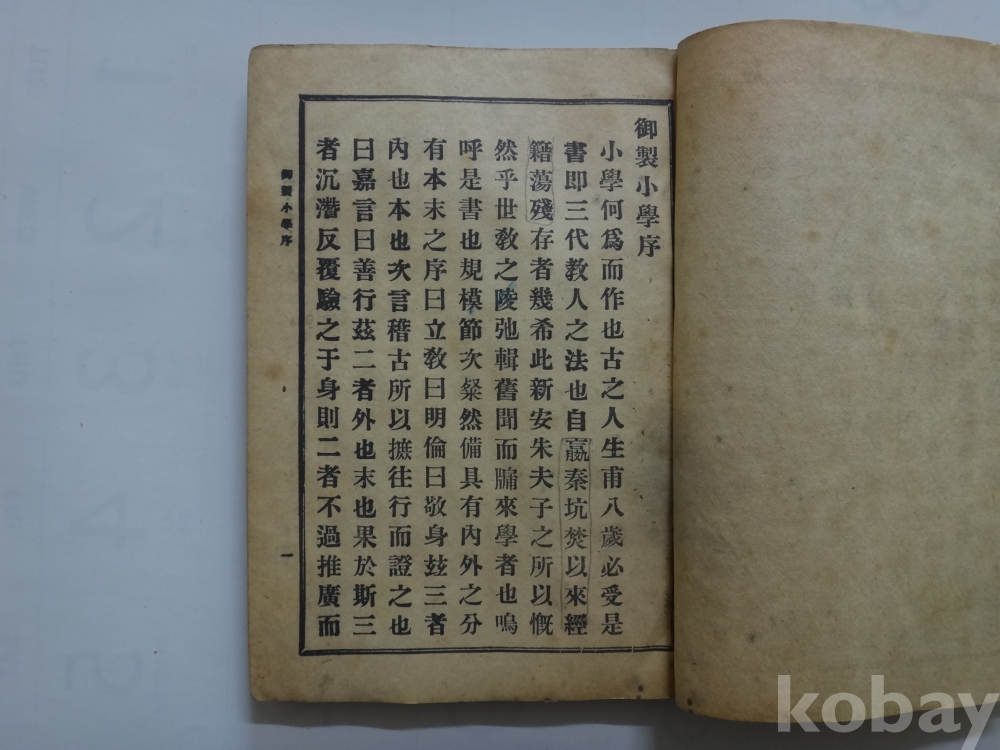 御製小學序
小學何爲而作也古之人生甫八歲必受是
書即三代教人之法也自嬴秦坑焚以來經
籍蕩殘存者幾希此新安朱夫子之所以慨
然乎世敎之陵弛輯舊聞而牖來學者也嗚
呼是書也規模節次粲然備具有內外之分
有本末之序曰立敎曰明倫曰敬身玆三者
內也本也次言稽古所以摭往行而證之也
曰嘉言曰善行茲二者外也末也果於斯三
者沉潛反覆驗之于身則二者不過推廣而
御製小學序
一
kobay